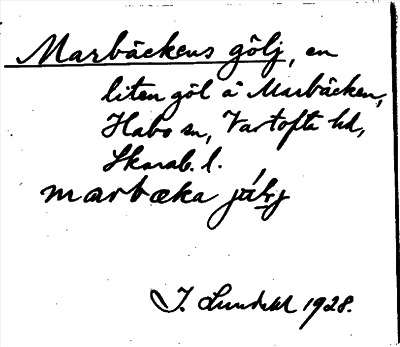 Marbäckens gölj, en
liten göl å Marbäcken,
Habo sn, Vartofta hd,
Skarab. l.
marbæka
J. Lundahl 1928.